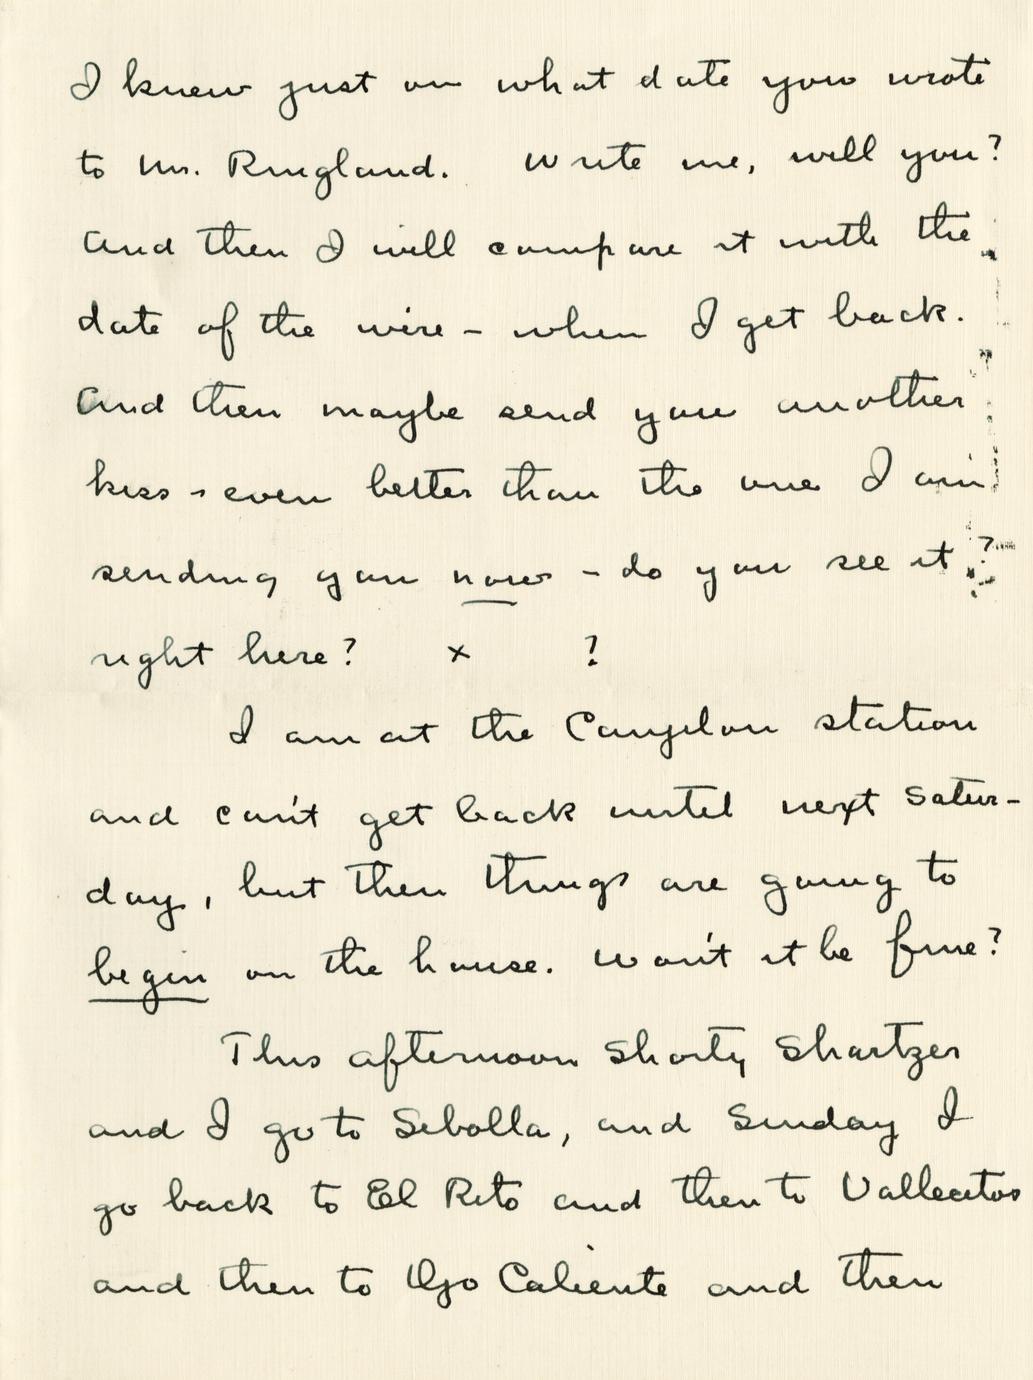 I knew just on what date you wrote
to Mr. Ringland. Write me, will you?
And then I will compare it with the
date of the wire – when I get back.
And then maybe send you another
kiss – even better than the one I am
sending you now – do you see it ?
right here? x ?
I am at the Canjilon station
and can't get back until next Satur-
day, but then things are going to
begin on the house. Won't it be fine?
This afternoon Shorty Shartzer
and I go to Sebolla, and Sunday I
go back to El Rito and then to Vallecitos
and then to Ojo Caliente and then